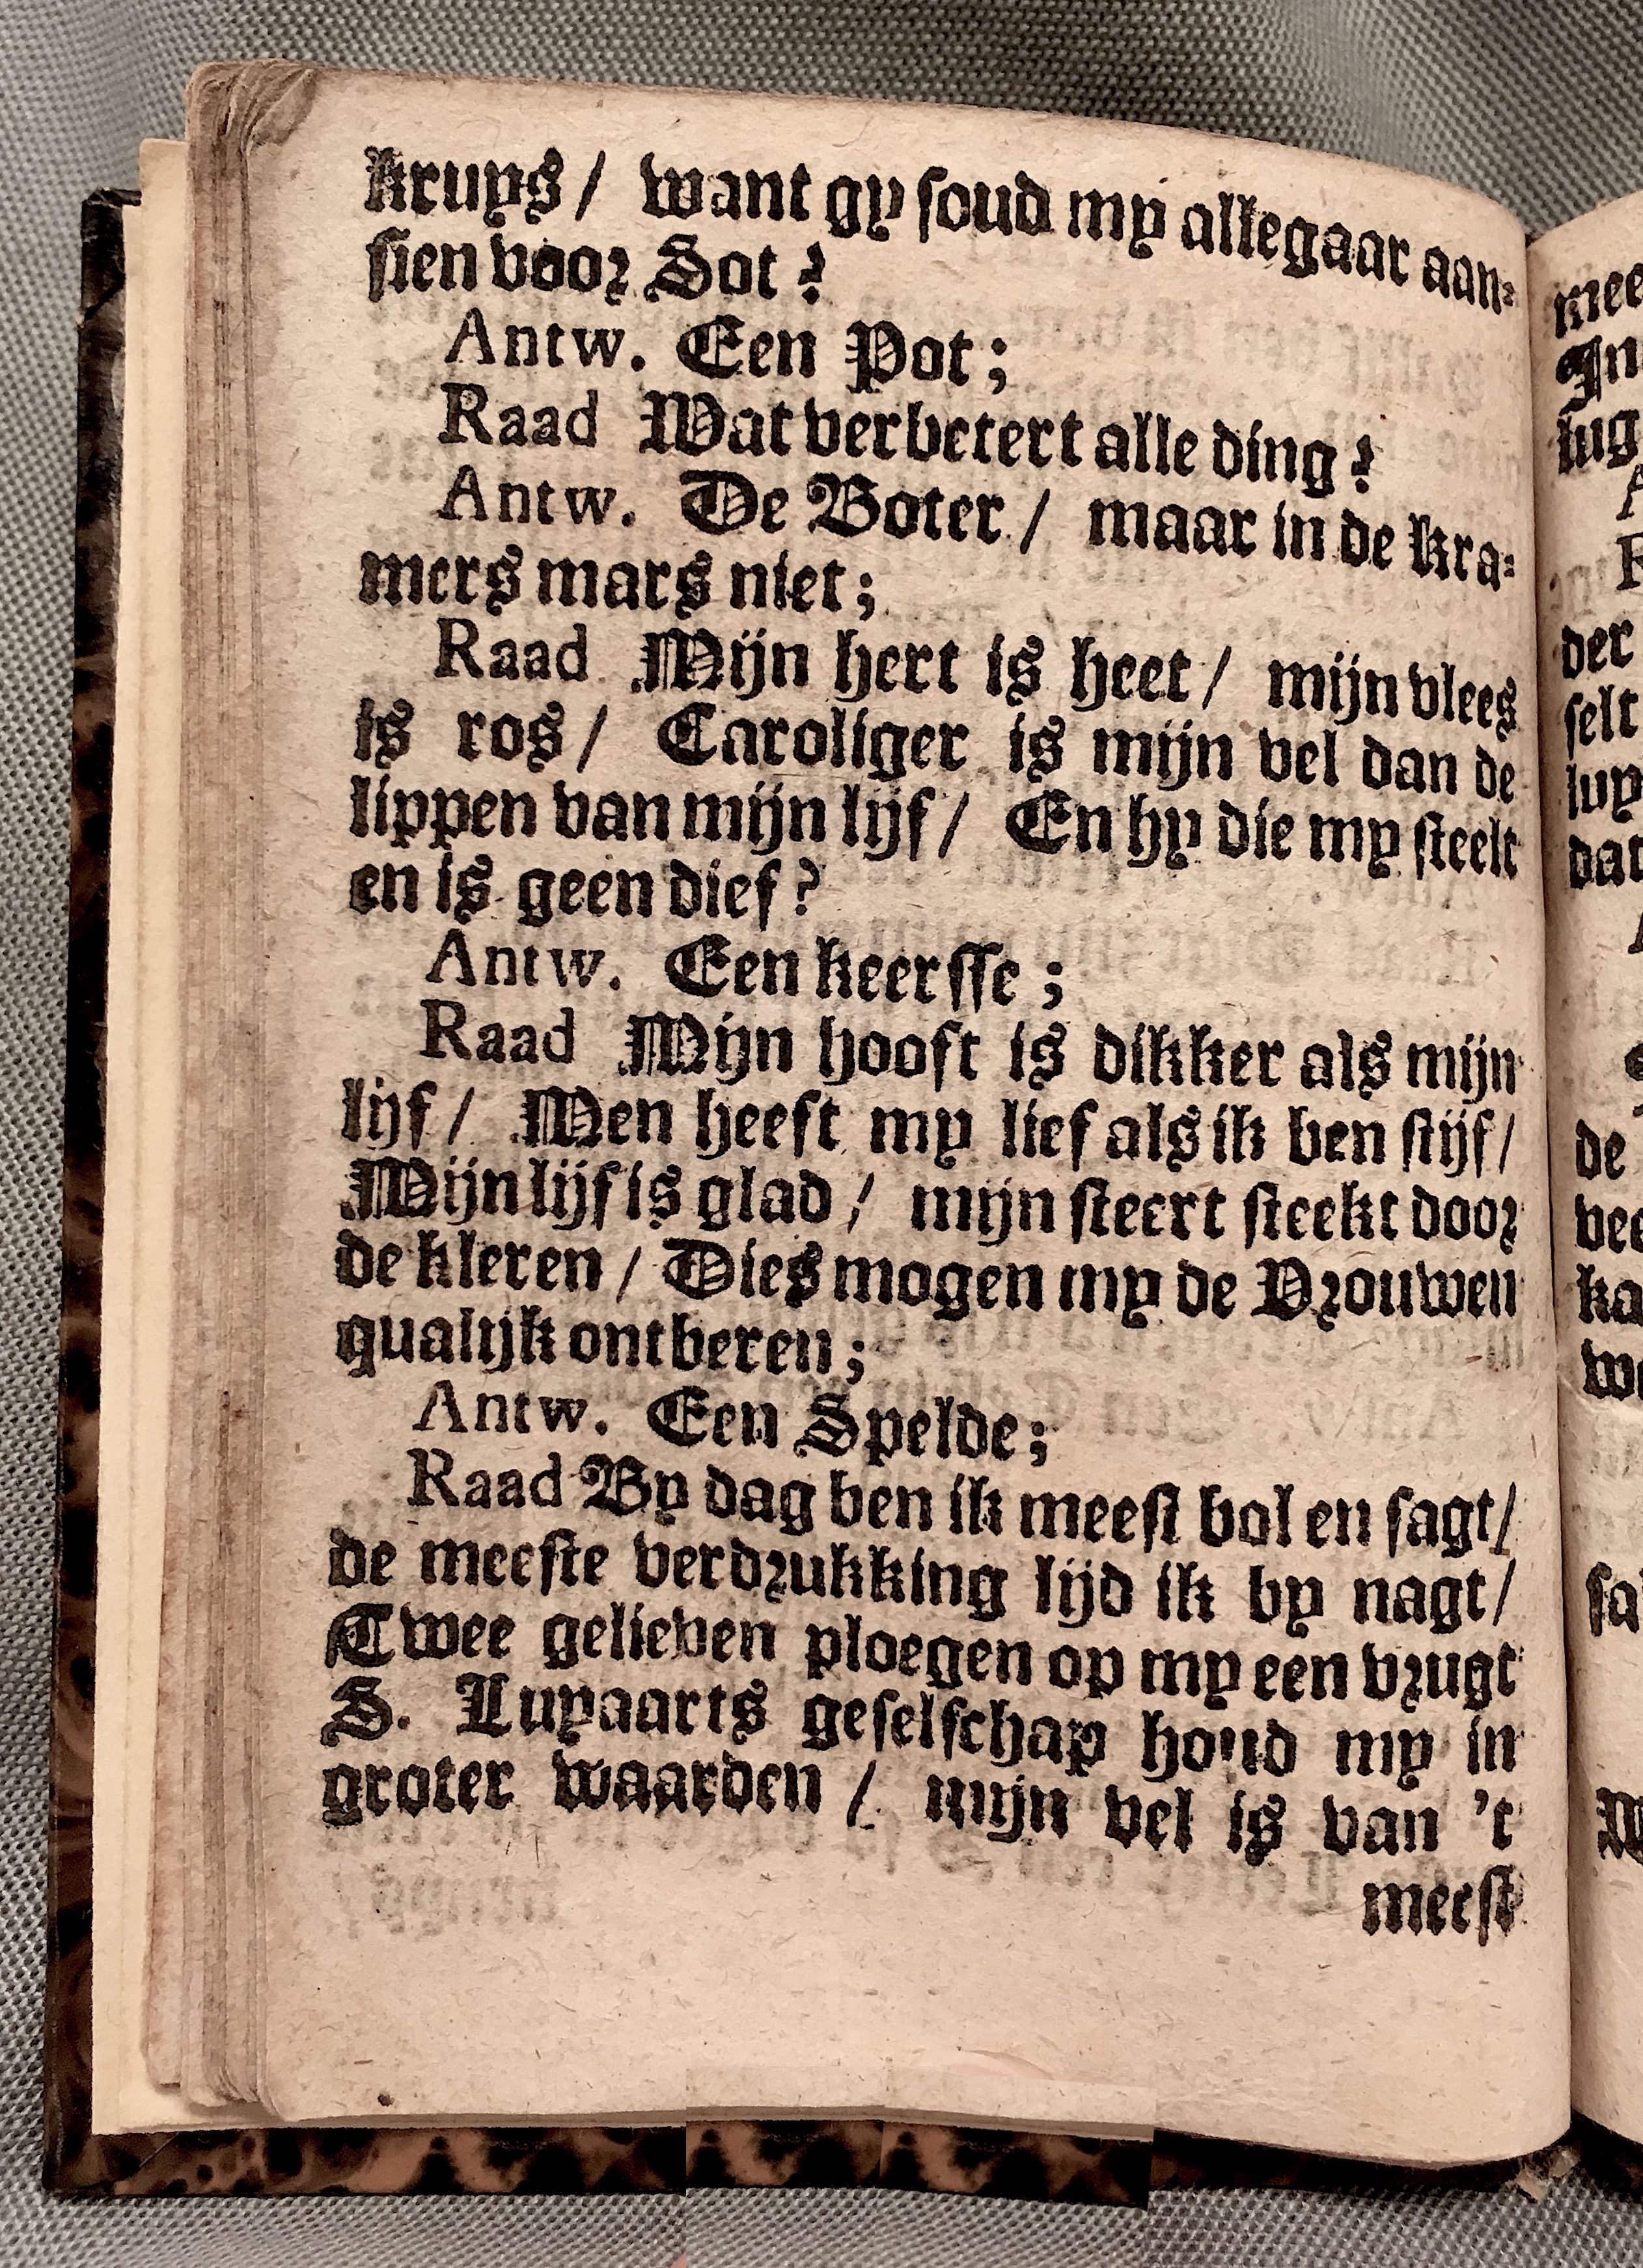 kruys / want gy soud my allegaar aan-
sien voor Sot ?
Antw. Een Pot ;
Raad Wat verbetert alle ding ?
Antw. De Boter / maar in de kra-
mers mars niet ;
Raad Mijn hert is heet / mijn vlees
is ros / Caroliger is mijn vel dan de
lippen van mijn lijf / En hy die my steelt
en is geen dief ?
Antw. Een keersse ;
Raad Mijn hooft is dikker als mijn
lijf / Men heeft my lief als ik ben stijf /
Mijn lijf is glad / mijn steert steekt door
de kleren / Dies mogen my de Vrouwen
qualijk ontberen ;
Antw. Een Spelde ;
Raad By dag ben ik meest bol en sagt /
de meeste verdrukking lijd ik by nagt /
Twee gelieven ploegen op my een vrugt
S. Luyaarts geselschap houd my in
groter waarden / mijn vel is van 't
meest